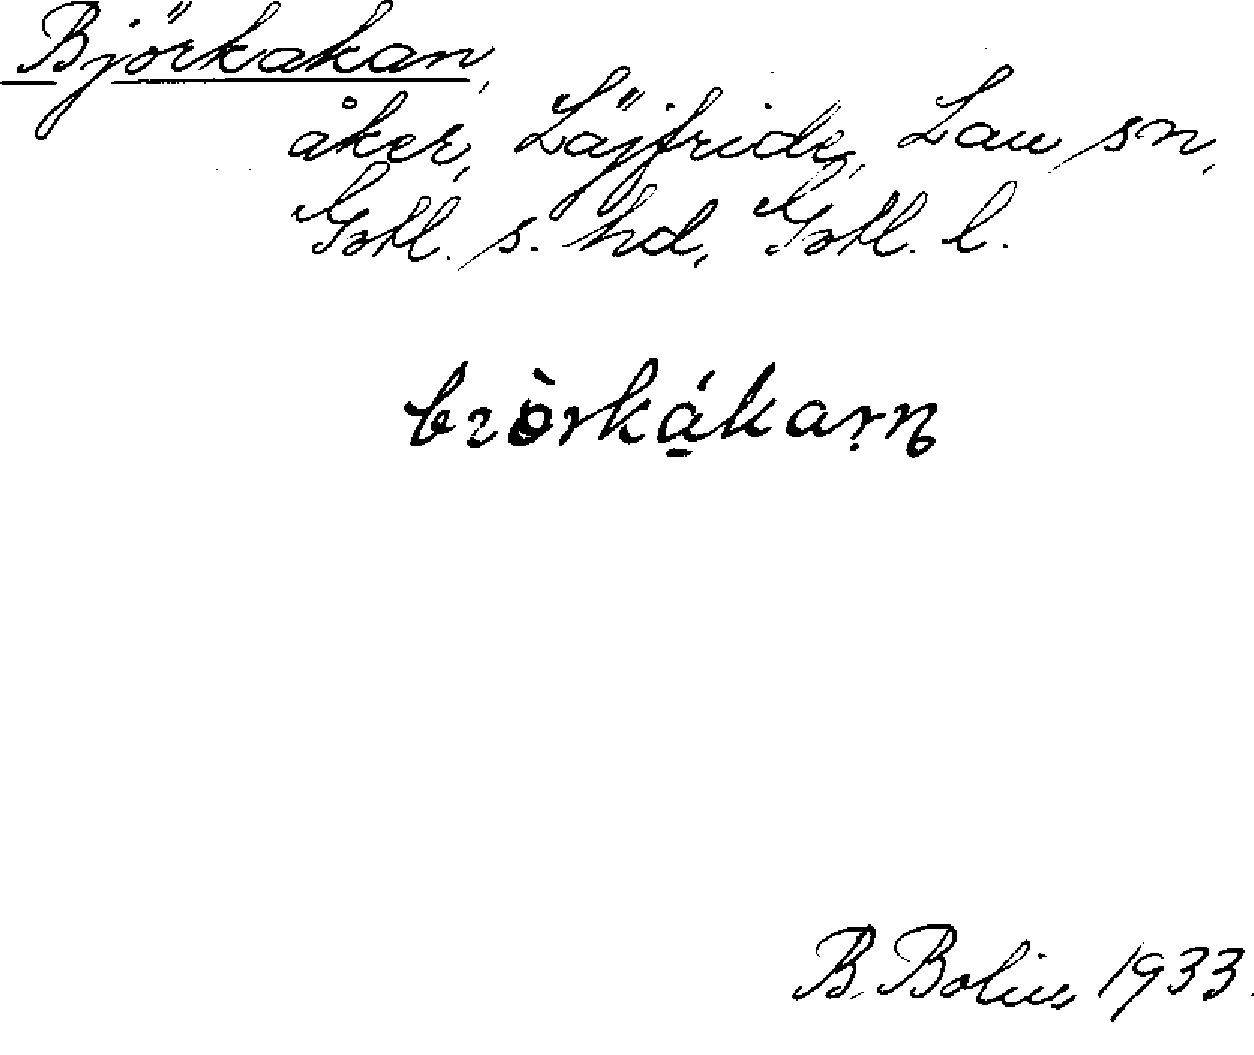 Björkakan,
åker, Läjfride, Lau sn,
Gotl. s. hd, Gotl. l.
B. Bolin, 1933.